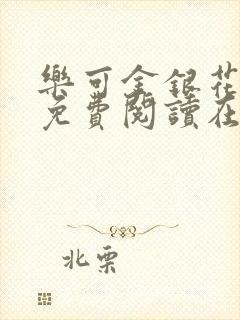 樂可金銀花
免費閱讀在
北栗